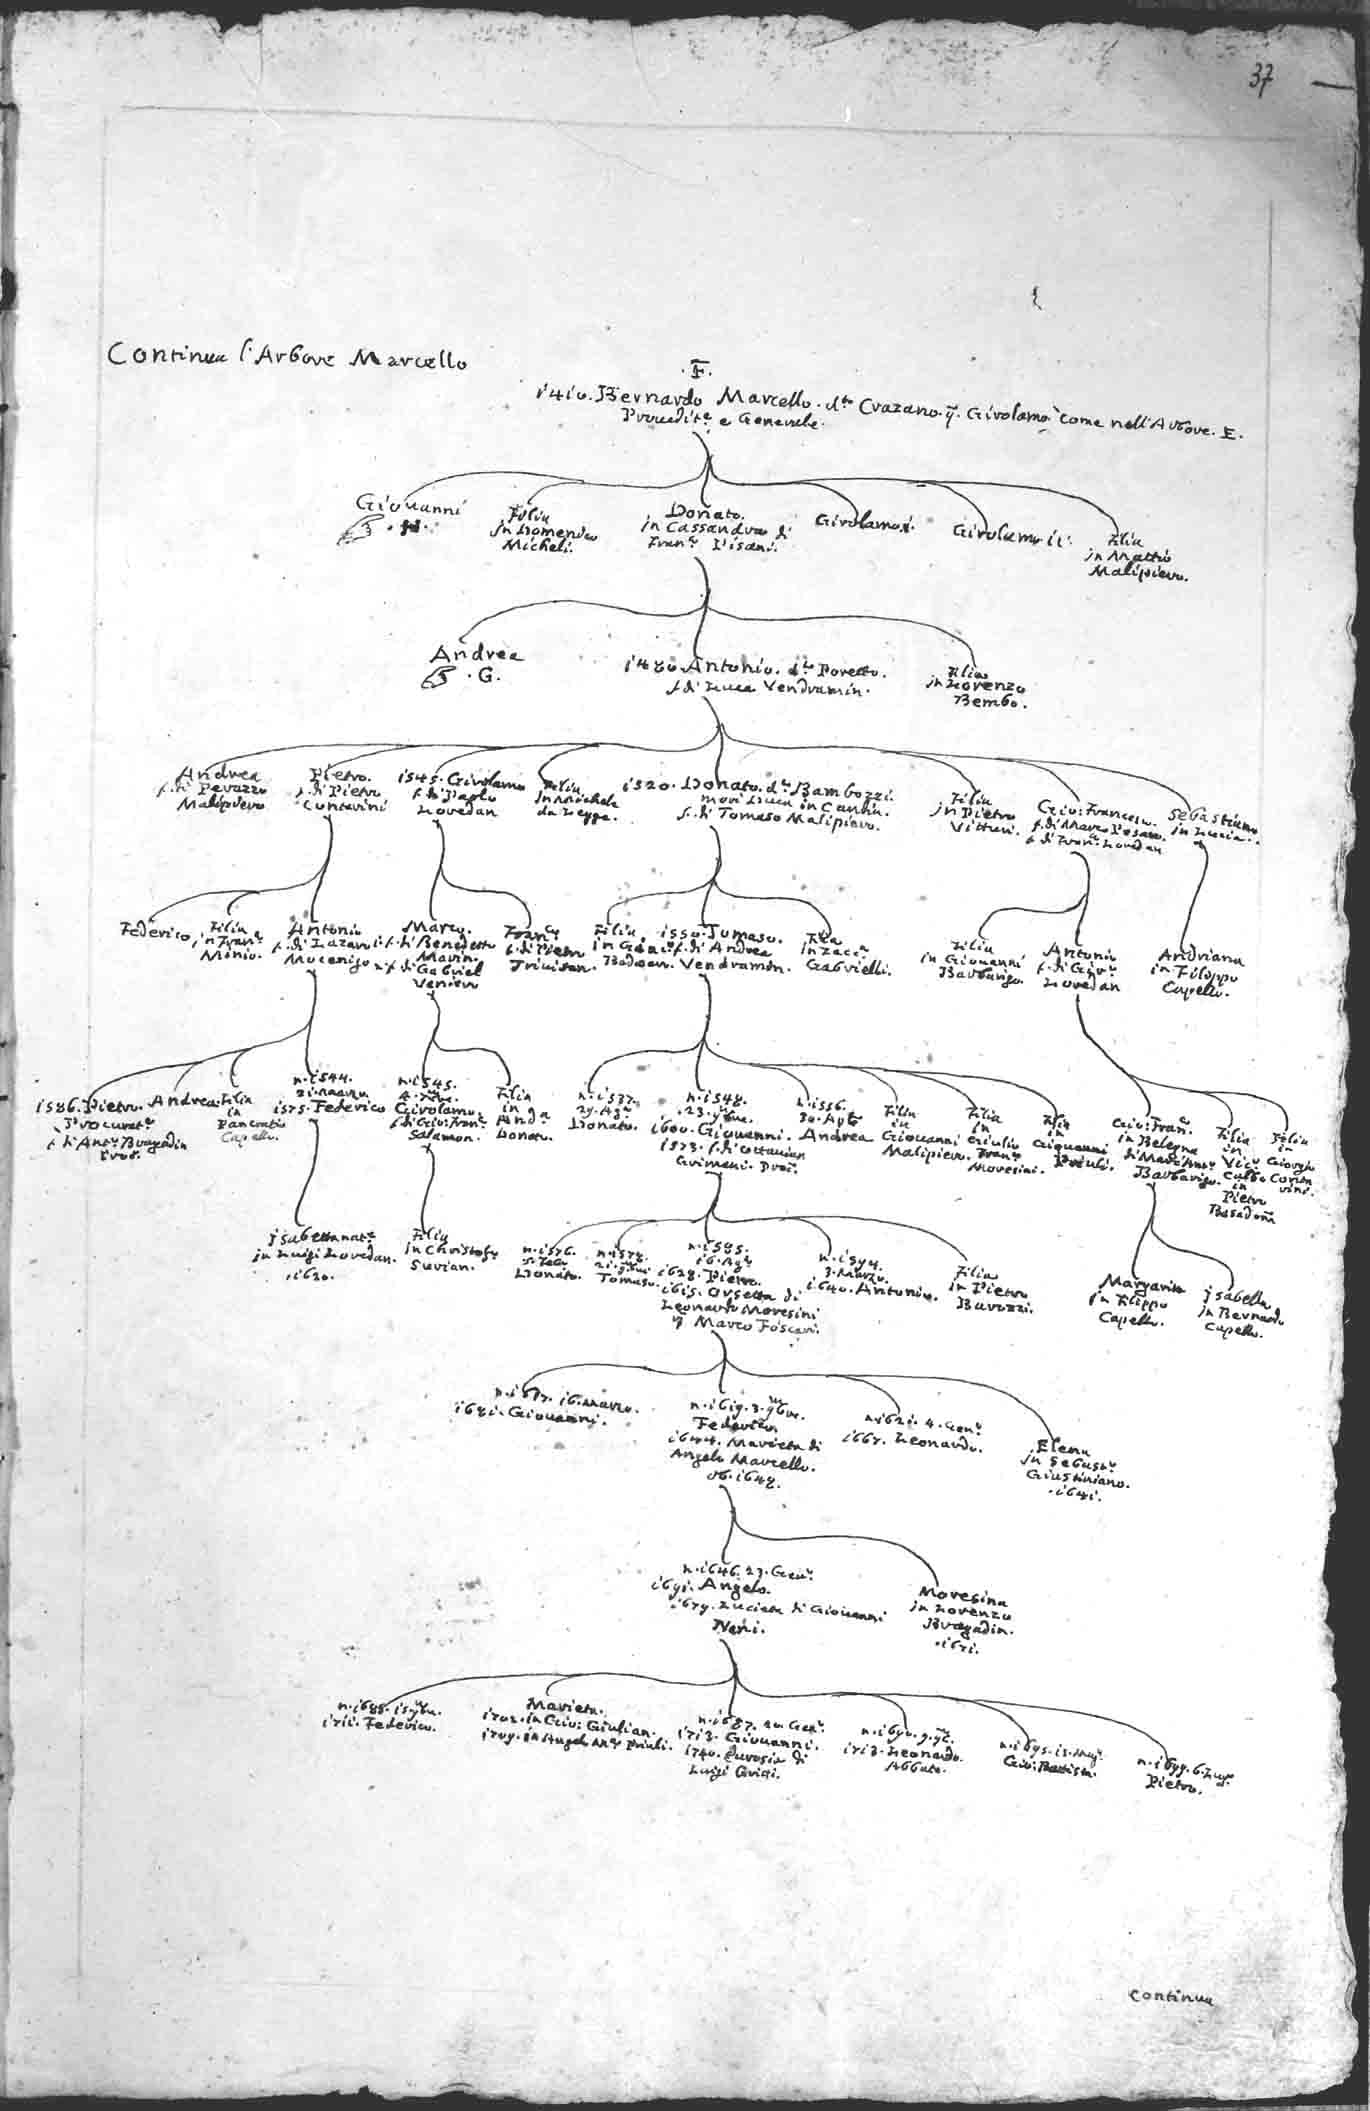 37
Continua l'Arbore Marcello
.F.
1410. Bernardo Marcello. d.to Crazano. q. Girolamo come nell'Arbore. E.
Prouedit.e e Generale.
Giouanni
. H .
Filia
in Domenico
Micheli.
Donato.
in Cassandra di
Fran.co Pisani.
Girolamo i.
Girolamo ii.
Filia
in Mattio
Malipiero.
Andrea
. G.
1480. Antonio. d.to Poretto.
f. di Luca Vendramin.
Filia
in Lorenzo
Bembo.
Andrea
f. di Perazzo
Malipiero
Pietro.
f. di Pietro
Contarini
1545. Girolamo
f. di Paolo
Loredan
Filia
in Michele
da Lezze.
1520. Donato. d.to Bambozzi.
morì Duca in Candia.
f. di Tomaso Malipiero.
Filia
in Pietro
Vitturi.
Gio: Francesco.
f. di Marco Pesaro.
f. di Fran.co Loredan
Sebastiano
in Lucia.
Federico
Filia
in Fran.co
Minio.
Antonio
f. di Lazaro
Mocenigo
Marco.
i. f. di Benedetto
Marin.
2. f. di Gabriel
Venier
Fran.co
f. di Pietro
Triuisan.
Filia
in
Badoer.
1550. Tomaso.
f. di Andrea
Vendramin.
Filia
in Zacc.a
Gabrielli.
Filia
in Giouanni
Barbarigo.
Antonio
f. di Gio:
Loredan
Andriana
in Filippo
Capello.
1586. Pietro.
Procurat.r
f. di Ant.o Bragadin
Proc.
Andrea.
Filia
in
Pancratio
Capello.
n. 1544.
21. Marzo.
1575. Federico
n. 1545.
Girolamo.
f. di Gio: Fran.co
Salamon.
Filia
in
And.a
Donato.
n. 1537.
29. Ag.o
Donato.
n. 1548.
23. 9bre.
1600. Giouanni.
1573. f. di Ottauian
Grimani. Proc.
n. 1556.
30. Ag.to
Andrea
Filia
in
Giouanni
Malipiero.
Filia
in
Giulio
Fran.co
Moresini.
Filia
in
Giouanni
Priuli.
Gio: Fran.co
in Belegna
di Marc'Ant.o
Barbarigo.
Filia
in
Vic.o
Calbo
in
Pietro
Basadona
Filia
in
Giorgio
Conta
rini.
Isabetta nat.e
in Luigi Loredan.
. 1620.
Filia
in Christofo
Surian.
n. 1576.
Donato.
n. 1578.
Tomaso.
n. 1585.
16. Ag.o
1628. Pietro.
1615. Orsetta di
Leonardo Moresini
q. Marco Foscari.
n. 1594.
3. Marzo.
1640. Antonio.
Filia
in Pietro
Barozzi.
Margarita
in Filippo
Capello.
Isabella
in Bernardo
Capello.
16. Marzo.
1681. Giouanni.
n. 1619. 3. 9bre.
Federico.
1644. Marieta di
Angelo Marcello.
ob. 1648.
n. 1621. 4. Gen.o
1667. Leonardo.
Elena
in Sebast.o
Giustiniano.
. 1641.
n. 1646. 23. Gen.o
1691. Angelo.
1679. Lucieta di Giouanni
Nani.
Moresina
in Lorenzo
Bragadin.
. 1671.
n. 1685. 15. 9bre.
1711. Federico.
Marieta.
1702. in Gio: Giulian.
1709. in Angelo M.a Priuli.
n. 1687. 20. Gen.o
1713. Giouanni.
1740. Eurosia di
Luigi Gritti.
n. 1690. 9.
1713. Leonardo.
Abbate.
n. 1695. 13. Mag.o
Gio: Battista.
n. 1699. 6. Lug.o
Pietro.
Continua